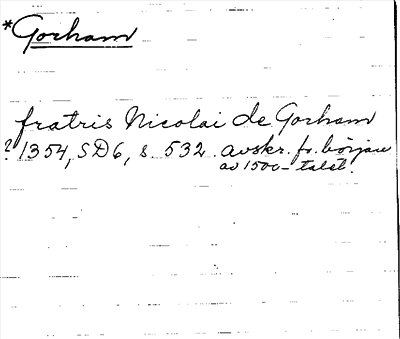 *Gorham
fratris Nicolai de Gorham
? 1354, SD6, s. 532. avskr. fr. början
av 1500-talet.